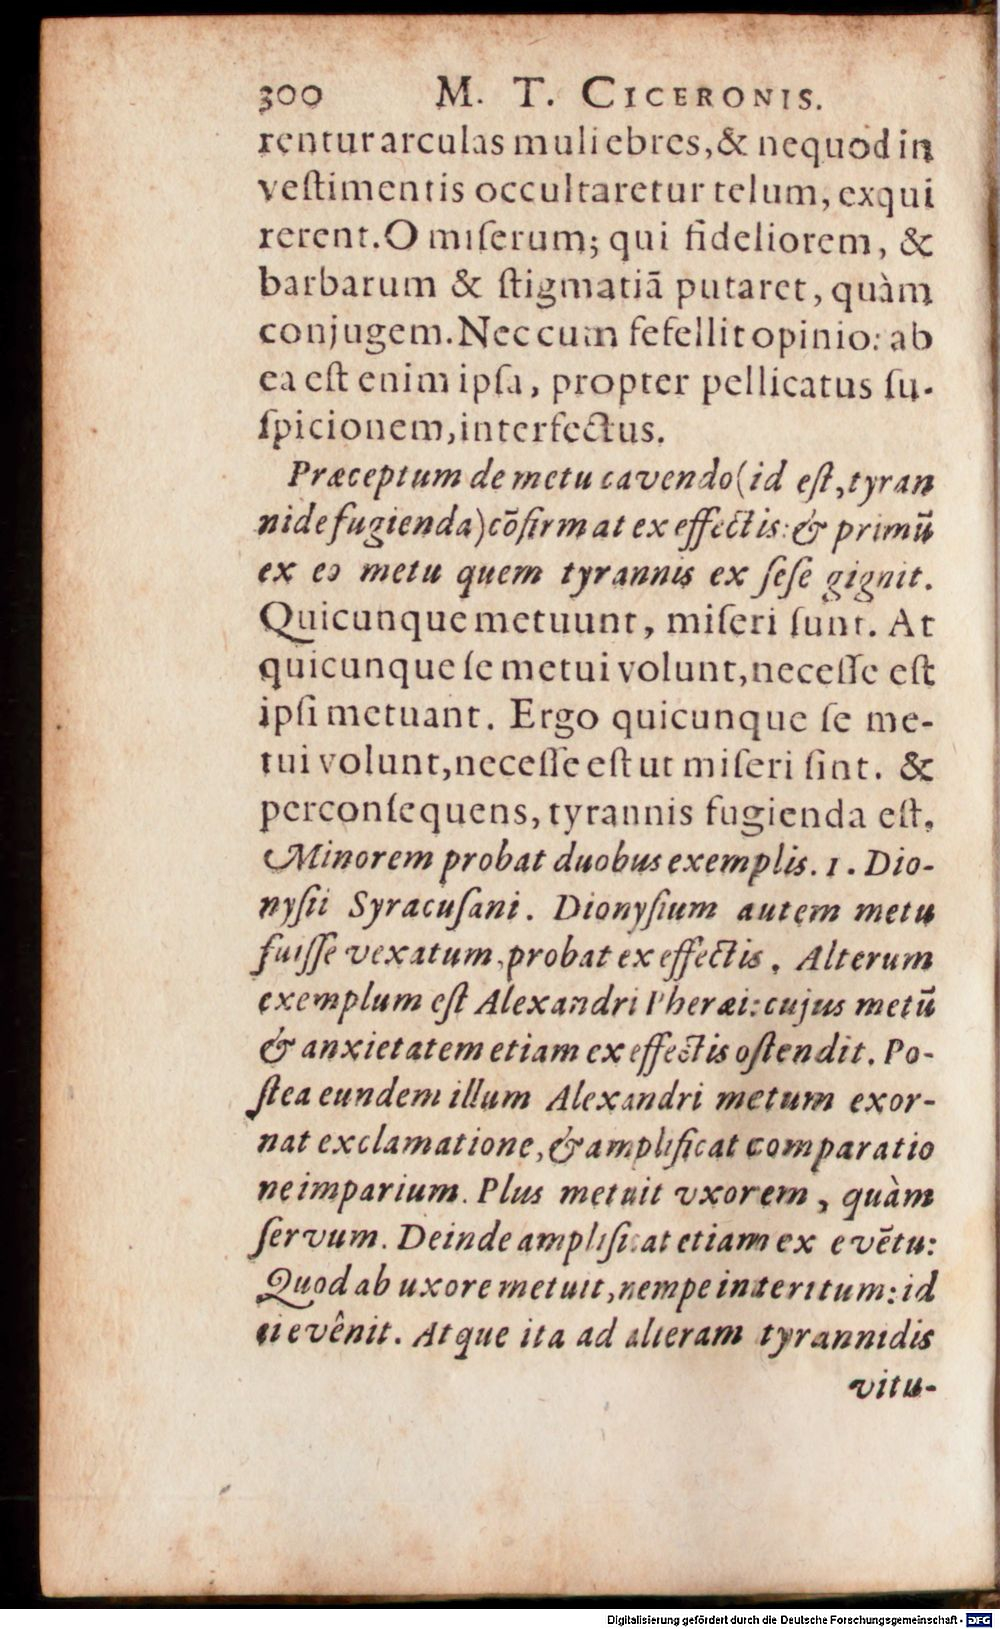 300 M. T. CICERONIS.
rentur arculas muliebres, & nequod in
veſtimentis occultaretur telum, exqui
rerent. O miſerum; qui fideliorem, &
barbarum & ſtigmatiã putaret, quàm
conjugem. Nec eum fefellit opinio: ab
ea eſt enim ipſa, propter pellicatus ſu-
ſpicionem, interfectus.
Præceptum de metu cavendo (id eſt, tyran
nide fugienda) cõfirmat ex effectis: & primũ
ex eo metu quem tyrannis ex ſeſe gignit.
Quicunque metuunt, miſeri ſunt. At
quicunque ſe metui volunt, neceſſe eſt
ipſi metuant. Ergo quicunque ſe me-
tui volunt, neceſſe eſt ut miſeri ſint. &
per conſequens, tyrannis fugienda eſt.
Minorem probat duobus exemplis. 1. Dio-
nyſii Syracuſani. Dionyſium autem metu
fuiſſe vexatum, probat ex effectis. Alterum
exemplum eſt Alexandri Pheræi: cujus metũ
& anxietatem etiam ex effectis oſtendit. Po-
ſtea eundem illum Alexandri metum exor-
nat exclamatione, & amplificat comparatio
ne imparium. Plus metuit vxorem, quàm
ſervum. Deinde amplificat etiam ex evẽtu:
Quod ab uxore metuit, nempe interitum: id
ei evênit. Atque ita ad alteram tyrannidis
vitu-
Digitalisierung gefördert durch die Deutsche Forschungsgemeinschaft - DFG